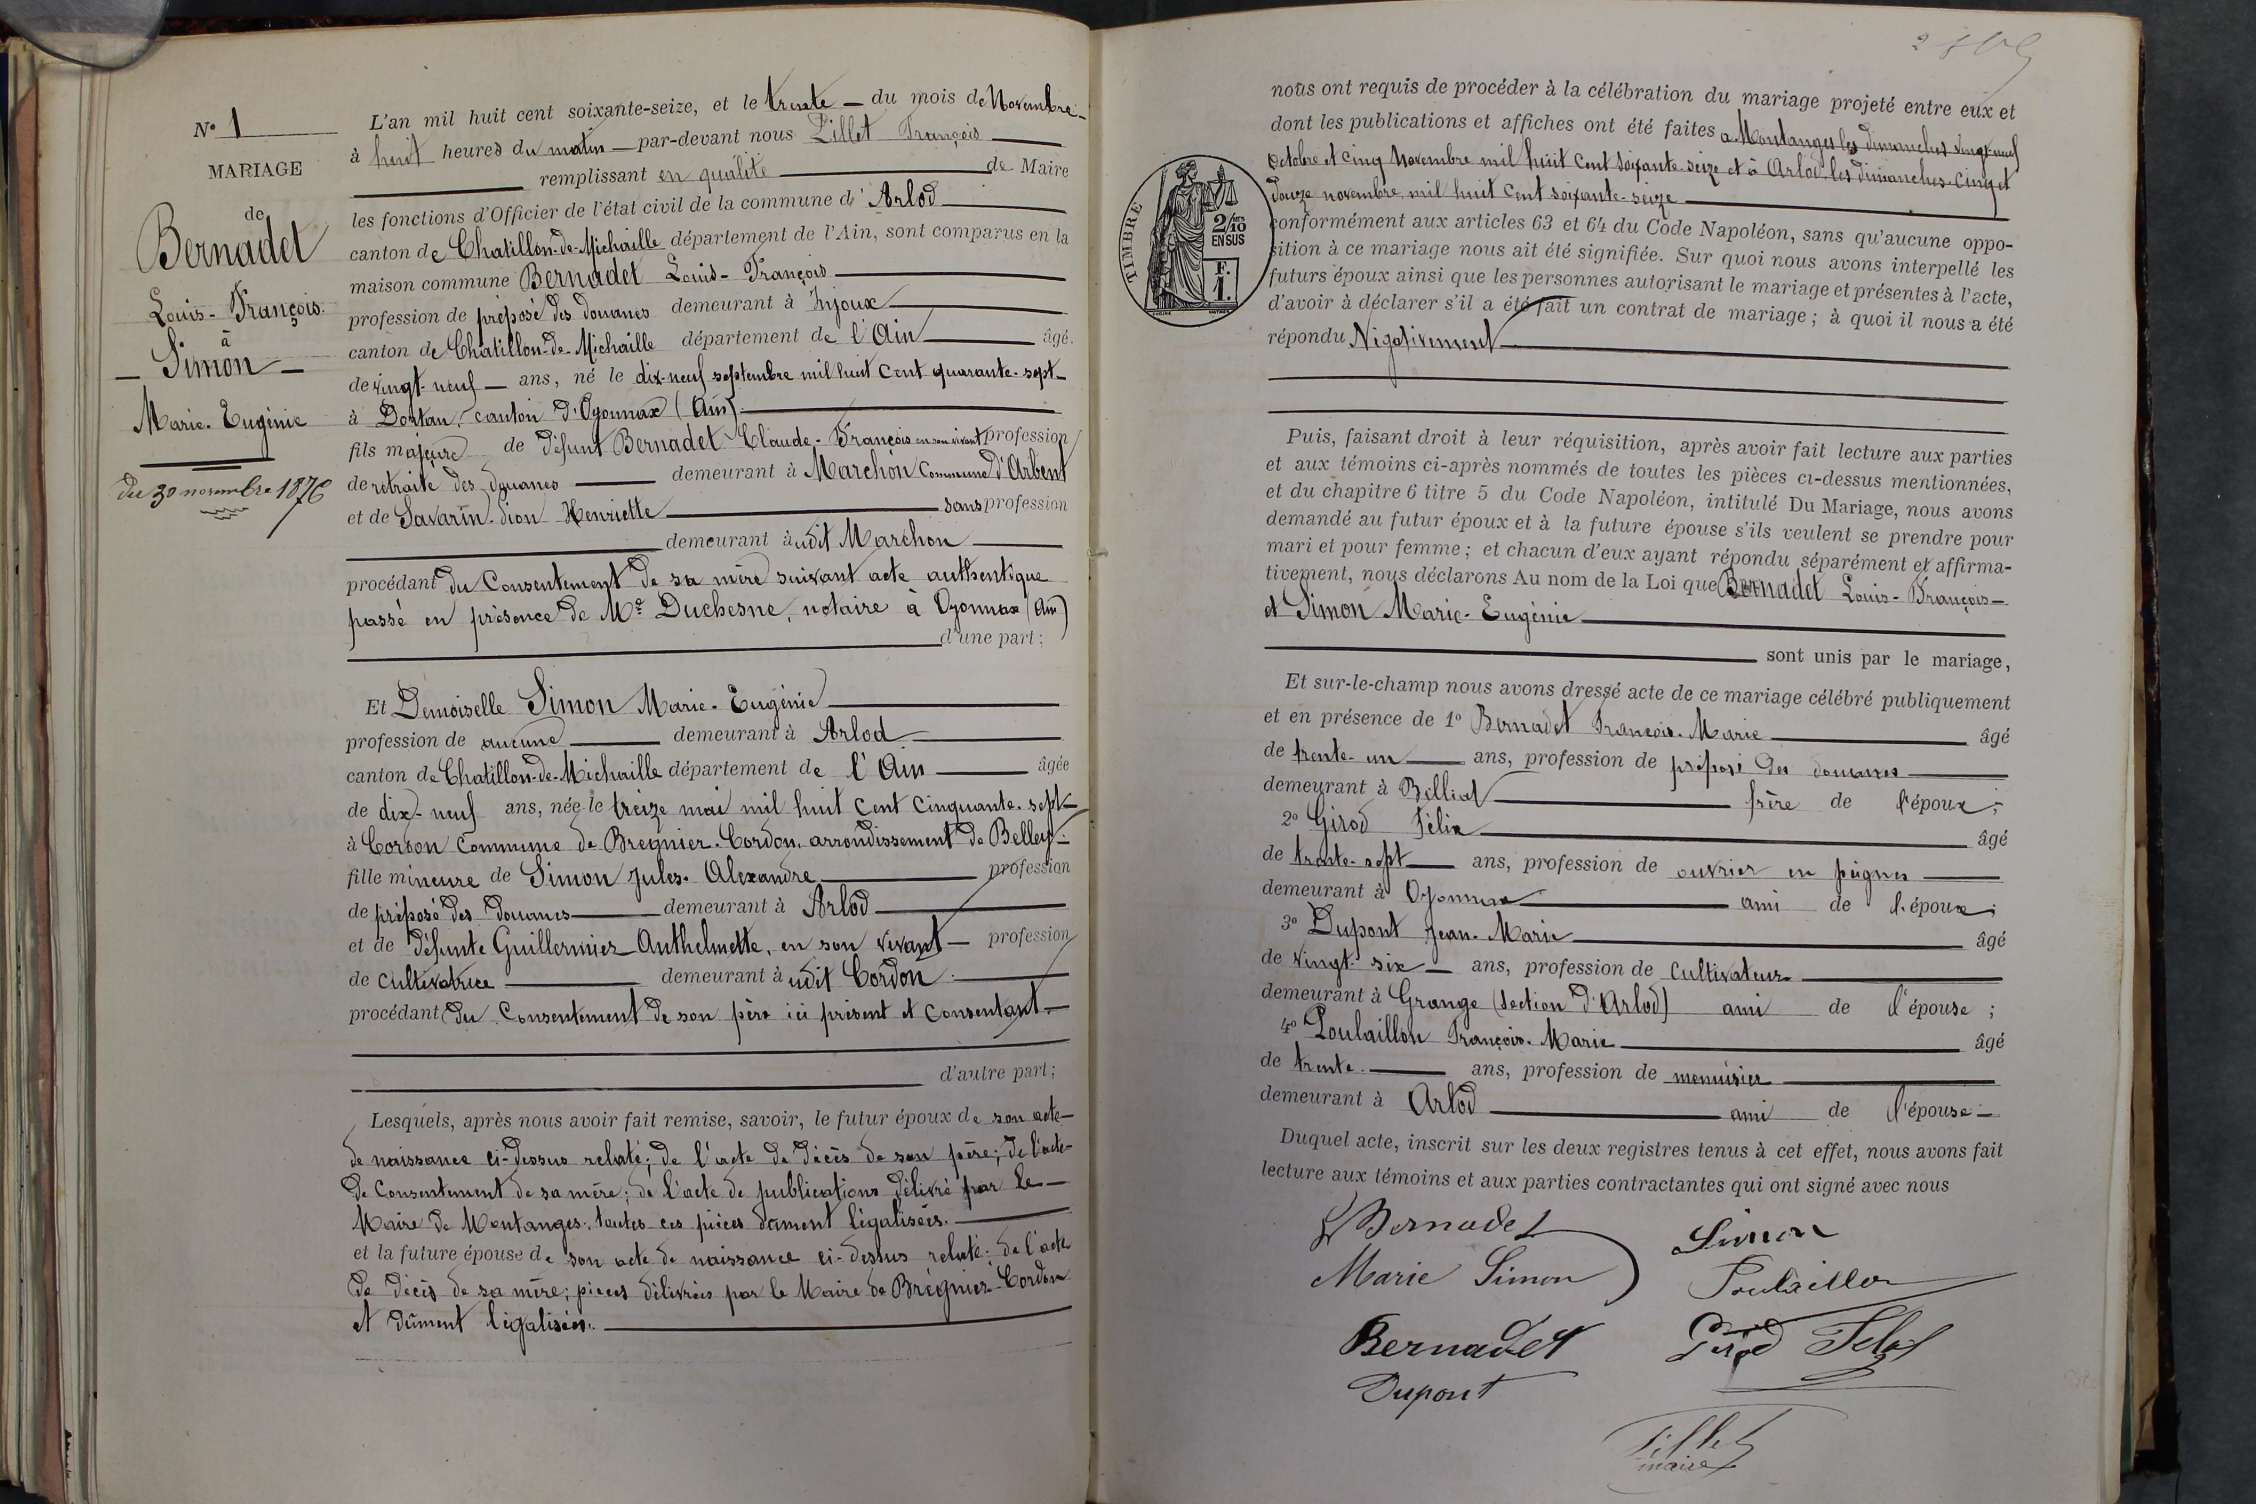 N° 1
MARIAGE
de
Bernadet
Louis-François
à
Simon
Marie-Eugénie
du 30 novembre 1876
L'an mil huit cent soixante-seize, et le trente du mois de Novembre
à huit heures du matin par-devant nous Lillet François
remplissant en qualité de Maire
les fonctions d'Officier de l'état civil de la commune d'Arlod
canton de Chatillon-de-Michaille département de l'Ain, sont comparus en la
maison commune Bernadet Louis-François
profession de préposé des douanes demeurant à Injoux
canton de Chatillon-de-Michaille département de l'Ain âgé
de vingt-neuf ans, né le dix-neuf septembre mil huit cent quarante-sept
à Dortan, canton d'Oyonnax (Ain)
fils majeure de défunt Bernadet Claude-François en son vivant profession
de retraité des douanes demeurant à Marchon Commune d'Arbent
et de Savarin-dion Henriette sans profession
demeurant à udit Marchon
procédant du Consentement de sa mère suivant acte authentique
passé en présence de Me Duchesne, notaire à Oyonnax (Ain)
d'une part;
Et Demoiselle Simon Marie-Eugénie
profession de aucune demeurant à Arlod
canton de Chatillon-de-Michaille département de l'Ain âgée
de dix-neuf ans, née le treize mai mil huit cent cinquante-sept
à Cordon commune de Bregnier-Cordon, arrondissement de Belley
fille mineure de Simon Jules-Alexandre profession
de préposé des douanes demeurant à Arlod
et de défunte Guillermier Anthelmette, en son vivant profession
de cultivatrice demeurant à udit Cordon
procédant du Consentement de son père ici présent et consentant
d'autre part;
Lesquels, après nous avoir fait remise, savoir, le futur époux de son acte
de naissance ci-dessus relaté; de l'acte de décès de son père; de l'acte
de consentement de sa mère; de l'acte de publications délivré par le
Maire de Montanges; toutes ces pièces dument légalisées.
et la future épouse de son acte de naissance ci-dessus relaté; de l'acte
de décès de sa mère; pièces délivrées par le Maire de Brégnier-Cordon
et dûment légalisées.
nous ont requis de procéder à la célébration du mariage projeté entre eux et
dont les publications et affiches ont été faites a Montanges les dimanches vingt-neuf
octobre et cinq novembre mil huit cent soixante-seize et à Arlod les dimanches cinq et
douze novembre mil huit cent soixante-seize
TIMBRE
2/10
EN SUS
F.
1.
conformément aux articles 63 et 64 du Code Napoléon, sans qu'aucune oppo-
sition à ce mariage nous ait été signifiée. Sur quoi nous avons interpellé les
futurs époux ainsi que les personnes autorisant le mariage et présentes à l'acte,
d'avoir à déclarer s'il a été fait un contrat de mariage; à quoi il nous a été
répondu Négativement
Puis, faisant droit à leur réquisition, après avoir fait lecture aux parties
et aux témoins ci-après nommés de toutes les pièces ci-dessus mentionnées,
et du chapitre 6 titre 5 du Code Napoléon, intitulé Du Mariage, nous avons
demandé au futur époux et à la future épouse s'ils veulent se prendre pour
mari et pour femme; et chacun d'eux ayant répondu séparément et affirma-
tivement, nous déclarons Au nom de la Loi que Bernadet Louis-François
et Simon Marie-Eugénie
sont unis par le mariage,
Et sur-le-champ nous avons dressé acte de ce mariage célébré publiquement
et en présence de 1° Bernadet François-Marie âgé
de trente-un ans, profession de préposé des douanes
demeurant à Belliat frère de l'époux;
2° Girod Félix âgé
de trente-sept ans, profession de ouvrier en peignes
demeurant à Oyonnax ami de l'époux;
3° Dupont Jean-Marie âgé
de vingt-six ans, profession de cultivateur
demeurant à Grange (section d'Arlod) ami de l'épouse;
4° Poulaillon François-Marie âgé
de trente ans, profession de menuisier
demeurant à Arlod ami de l'épouse
Duquel acte, inscrit sur les deux registres tenus à cet effet, nous avons fait
lecture aux témoins et aux parties contractantes qui ont signé avec nous
Bernadet Simon
Marie Simon Poulaillon
Bernadet Girod Felix
Dupont
Lillet
maire